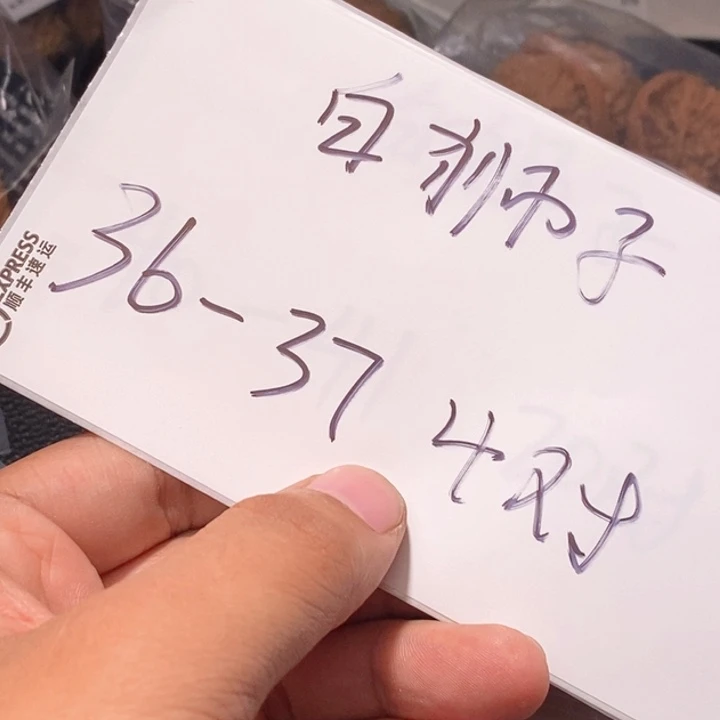 白狮子
36-37 4对
EXPRESS
顺丰速运